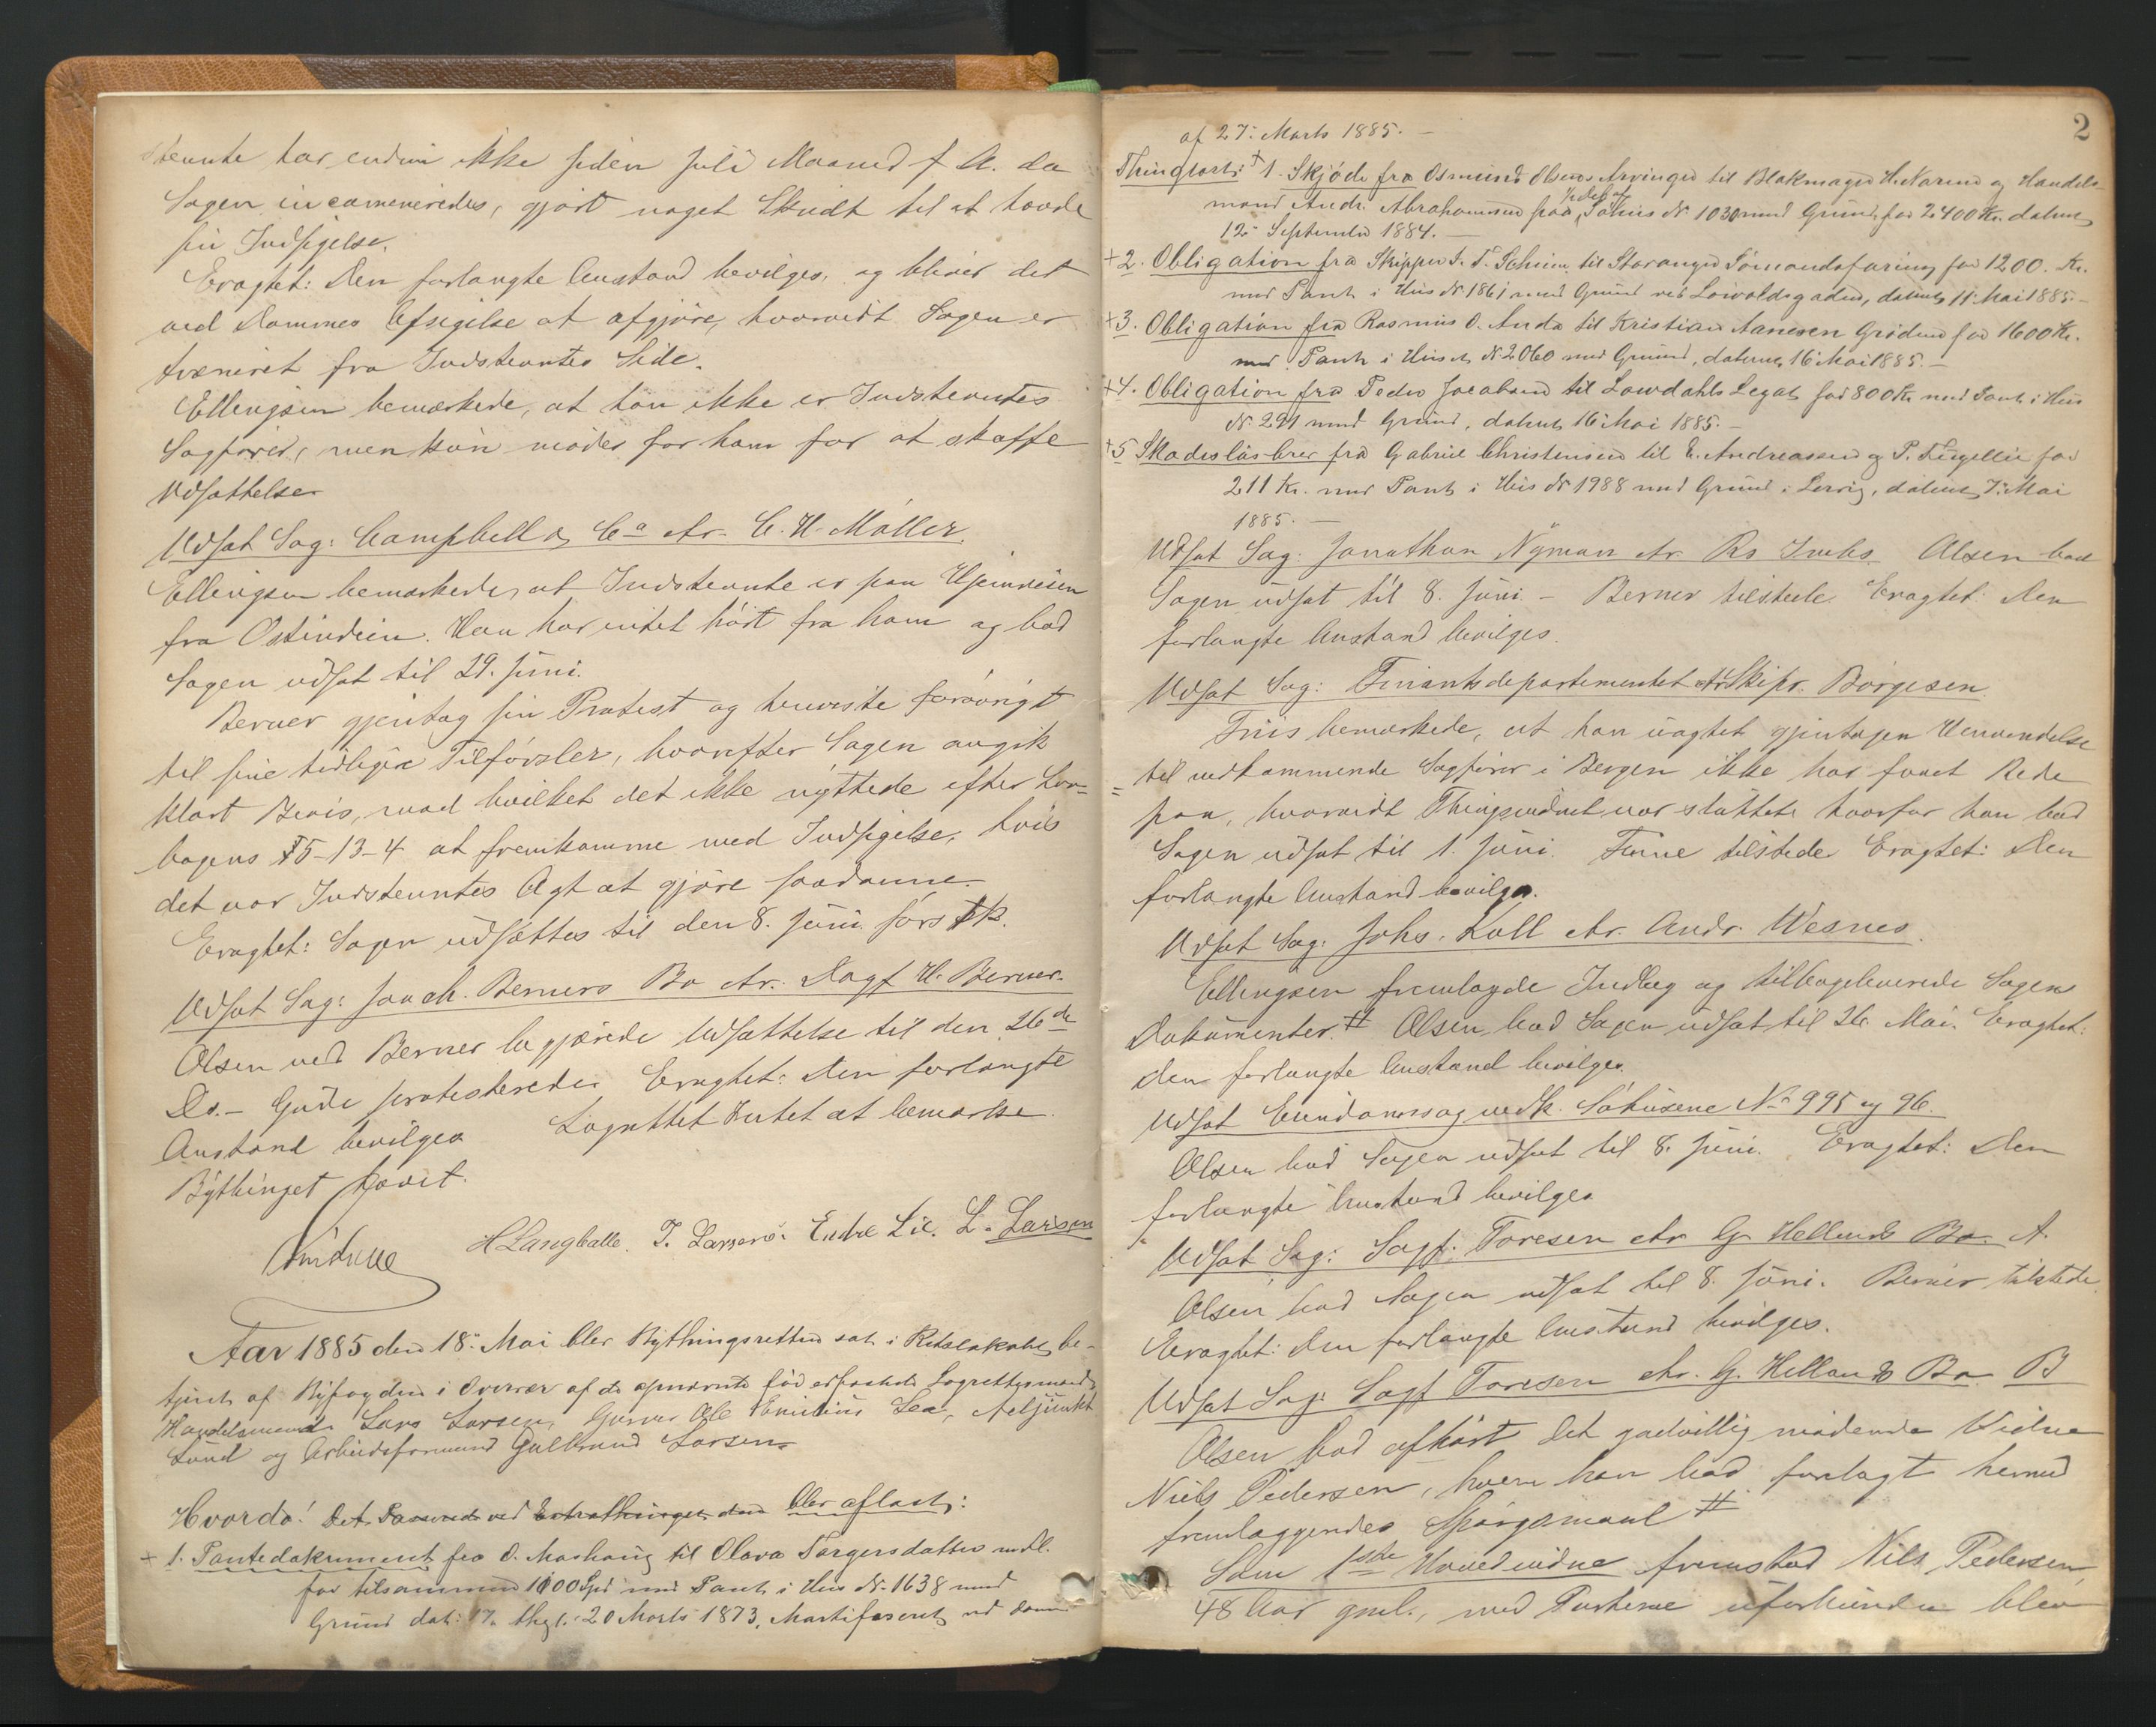 stevnte har endnu ikke siden Juli Maaned f. A. da
Sagen incamineredes, gjort noget Skridt til at hævde
sin Indsigelse.
Eragtet: Den forlangte Anstand bevilges, og bliver det
ved Dommes Afsigelse at afgjøre, hvorvidt Sagen er
træneret fra Indstevntes Side.
Ellingsen bemærkede, at han ikke er Indstevntes
Sagfører, men kun møder for ham for at skaffe
Udsættelse
Udsat Sag: Campbell & Co ctr. C. H. Møller.
Ellingsen bemærkede, at Indstevnte er paa Hjemreisen
fra Ostindien. Han har intet hørt fra ham og bad
Sagen udsat til 29. Juni.
Berner gjentog sin Protest og henviste forøvrigt
til sine tidligere Tilførsler, hvorefter Sagen angik
klart Bevis, mod hvilket det ikke nyttede efter Lov-
bogens 5-13-4 at fremkomme med Indsigelse, hvis
det var Indstevntes Agt at gjøre saadanne.
Eragtet: Sagen udsættes til den 8. Juni førstk.
Udsat Sag: Joach. Berners Bo ctr. Sagf H. Berner.
Olsen ved Berner begjærede Udsættelse til den 26de
Ds. - Gude protesterede. Eragtet: Den forlangte
Anstand bevilges Lagrettet Intet at bemærke.
Bythinget hævet.
H Langballe. T. Larsen. Endre Lie. L. Larsen
Aar 1885 den 18. Mai blev Bythingsretten sat i Retslokalet be-
tjent af Byfogden i Overvær af de opnævnte Lagrettesmænd
Handelsmand Lars Larsen, Garver Ole Emilius Lea, Adjunkt
Lund og Arbeidsformand Gulbrand Larsen
Hvorda! Det Passered ved Extrathinget den blev aflæst:
+ 1. Pantedokument fra O. Moshaug til Olava Torgersdatter m. fl.
for tilsammen 1100 Spd med Pant i Hus No. 1638 med
Grund dat: 17. thgl. 20 Marts 1873. Mortificeret ved Dom
2
af 27. Marts 1885. -
Thinglæst: + 1. Skjøde fra Osmund Olsens Arvinger til Blokmager H. Narum og Handels-
mand Andr. Abrahamsen paa 1/2 Del af Søhus No 1030 med Grund for 2400 Kr. dateret
12. September 1884. -
+ 2. Obligation fra Skipper S. T. til Stavanger Sømandsforening for 1200. Kr.
med Pant i Hus No 1861 med Grund ved Løvoldsgaden, dateret 11. Mai 1885. -
+ 3. Obligation fra Rasmus O. Anda til Kristian Aanesen Grøden for 1600 Kr.
med Pant i Huset No 2060 med Grund, dateret 16. Mai 1885. -
+ 4. Obligation fra Peder Jacobsen til Lowdahls Legat for 800 Kr. med Pant i Hus
No. 291 med Grund, dateret 16. Mai 1885. -
+ 5 Skadesløsbrev fra Gabriel Christensen til E. Andreassen og P. for
211 Kr. med Pant i Hus No 1988 med Grund i Lervig, dateret 7. Mai
1885. -
Udsat Sag: Jonathan Nyman ctr. Rs Olsen bad
Sagen udsat til 8. Juni - Berner tilstede Eragtet: Den
forlangte Anstand bevilges.
Udsat Sag: Finantsdepartementet ctr Skipr. Børgesen
Friis bemærkede, at han uagtet gjentagen Henvendelse
til vedkommende Sagfører i Bergen ikke har faaet Rede
paa, hvorvidt Thingsvidnet var sluttet, hvorfor han bad
Sagen udsat til 1. Juni. Finne tilstede Eragtet: Den
forlangte Anstand bevilges.
Udsat Sag: Johs. Koll ctr. Andr. Wesnes.
Ellingsen fremlagde Indlæg og tilbageleverede Sagens
Dokumenter. # Olsen bad Sagen udsat til 26. Mai. Eragtet:
den forlangte Anstand bevilges
Udsat vedk. Søhusene No 995 og 96.
Olsen bad Sagen udsat til 8. Juni. Eragtet: Den
forlangte Anstand bevilges
Udsat Sag: Sagf. Toresen ctr G. Hellands Bo. A.
Olsen bad Sagen udsat til 8. Juni. Berner tilstede
Eragtet: den forlangte Anstand bevilges.
Udsat Sag: Sagf Toresen ctr. G. Hellands Bo B
Olsen bad afhørt det godvillig mødende Vidne
Niels Pedersen, hvem han bad forelagt hermed
fremlæggendes Spørgsmaal #
Som 1ste Hovedvidne fremstod Nils Pedersen,
48 Aar gml., med Parterne uforbunden blev